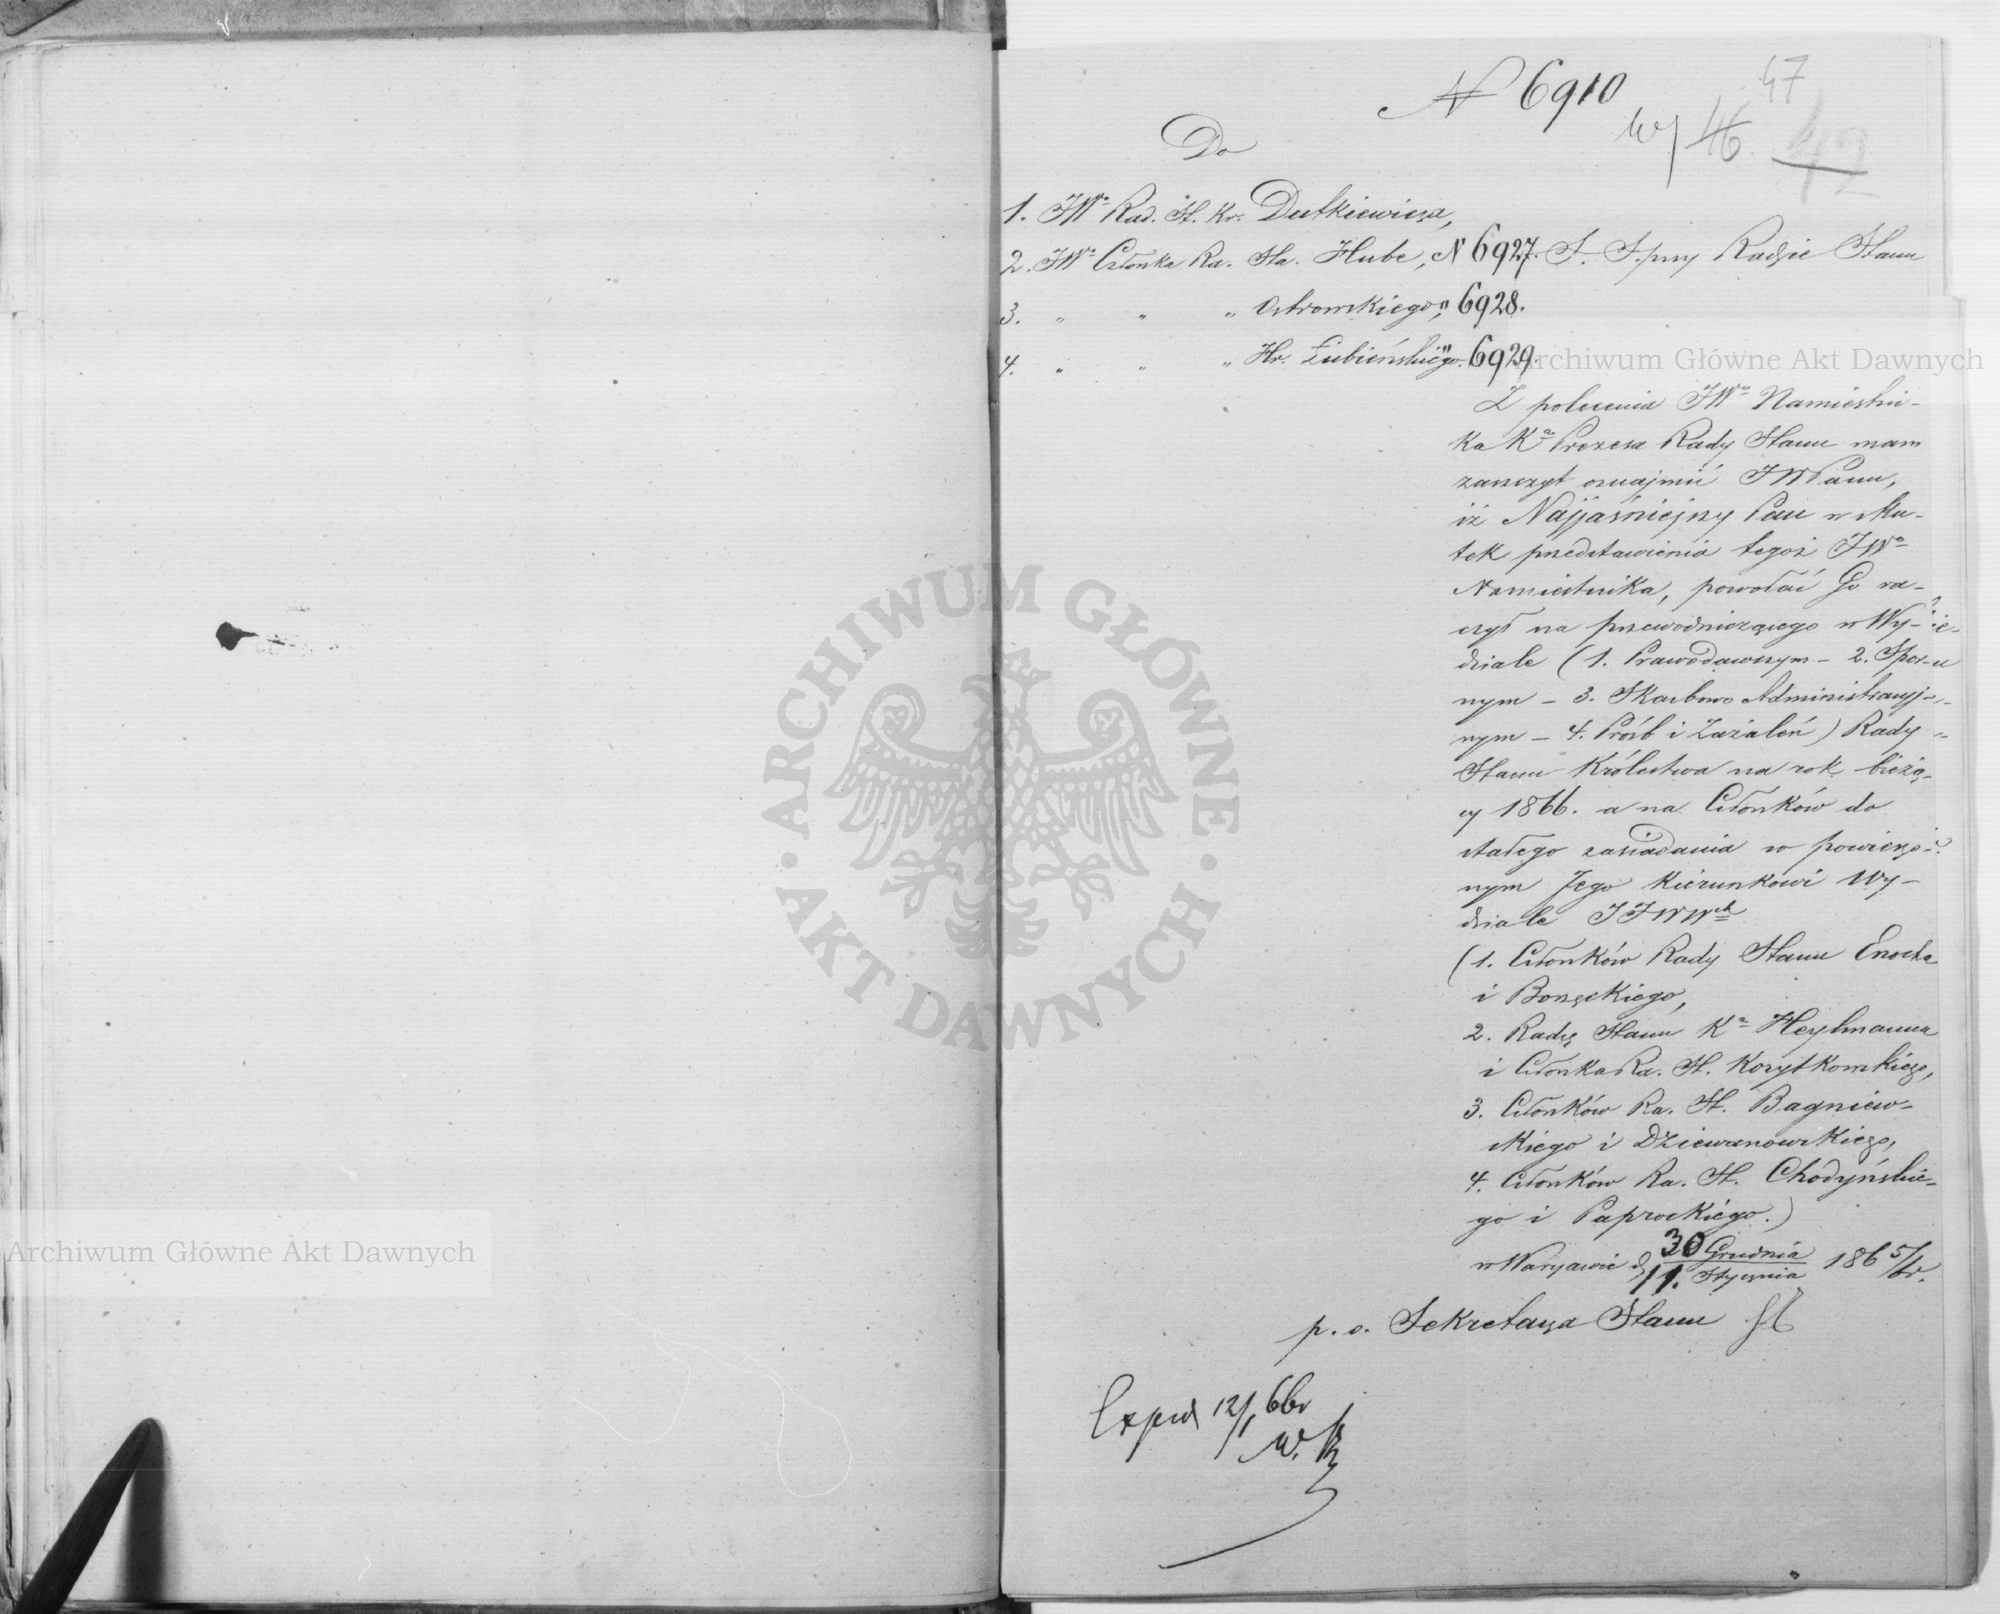 N 6910
47
46
42
Do
1. JWo Rad. St. Kr. Dutkiewicza,
2. JWo Członka Ra. Sta. Hube, N 6927. S. S. przy Radzie Stanu
3. " " " Ostrowskiego, " 6928.
4. " " " Hr. Łubieńskiego. " 6929.
Z polecenia JWo Namiestni-
ka Ka Prezesa Rady Stanu mam
zaszczyt oznajmić JWPanu,
iż Najjaśniejszy Pan w sku-
tek przedstawienia tegoż JWo
Namiestnika, powołać Go ra-
czył na przewodniczącego w Wy-
dziale (1. Prawodawczym - 2. Spor-
nym - 3. Skarbowo Administracyj-
nym - 4. Próśb i Zażaleń) Rady
Stanu Królestwa na rok bieżą-
cy 1866. a na Członków do
stałego zasiadania w powierzo-
nym Jego kierunkowi Wy-
dziale JJWWch
(1. Członków Rady Stanu Enocha
i Borzęckiego,
2. Radcę Stanu Ka Heylmanna
i Członka Ra. St. Korytkowskiego,
3. Członków Ra. St. Bagniew-
skiego i Dziewanowskiego,
4. Członków Ra. St. Chodyńskie-
go i Paprockiego.)
w Warszawie d. 30 Grudnia / 11. Stycznia 1865/6 r.
p. o. Sekretarza Stanu
Exped 12/1 66r
Archiwum Główne Akt Dawnych
Archiwum Główne Akt Dawnych
ARCHIWUM GŁÓWNE · AKT DAWNYCH ·